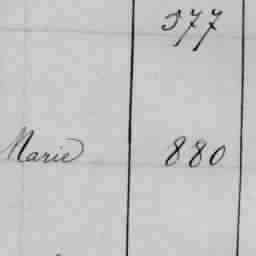 577
Marie 880